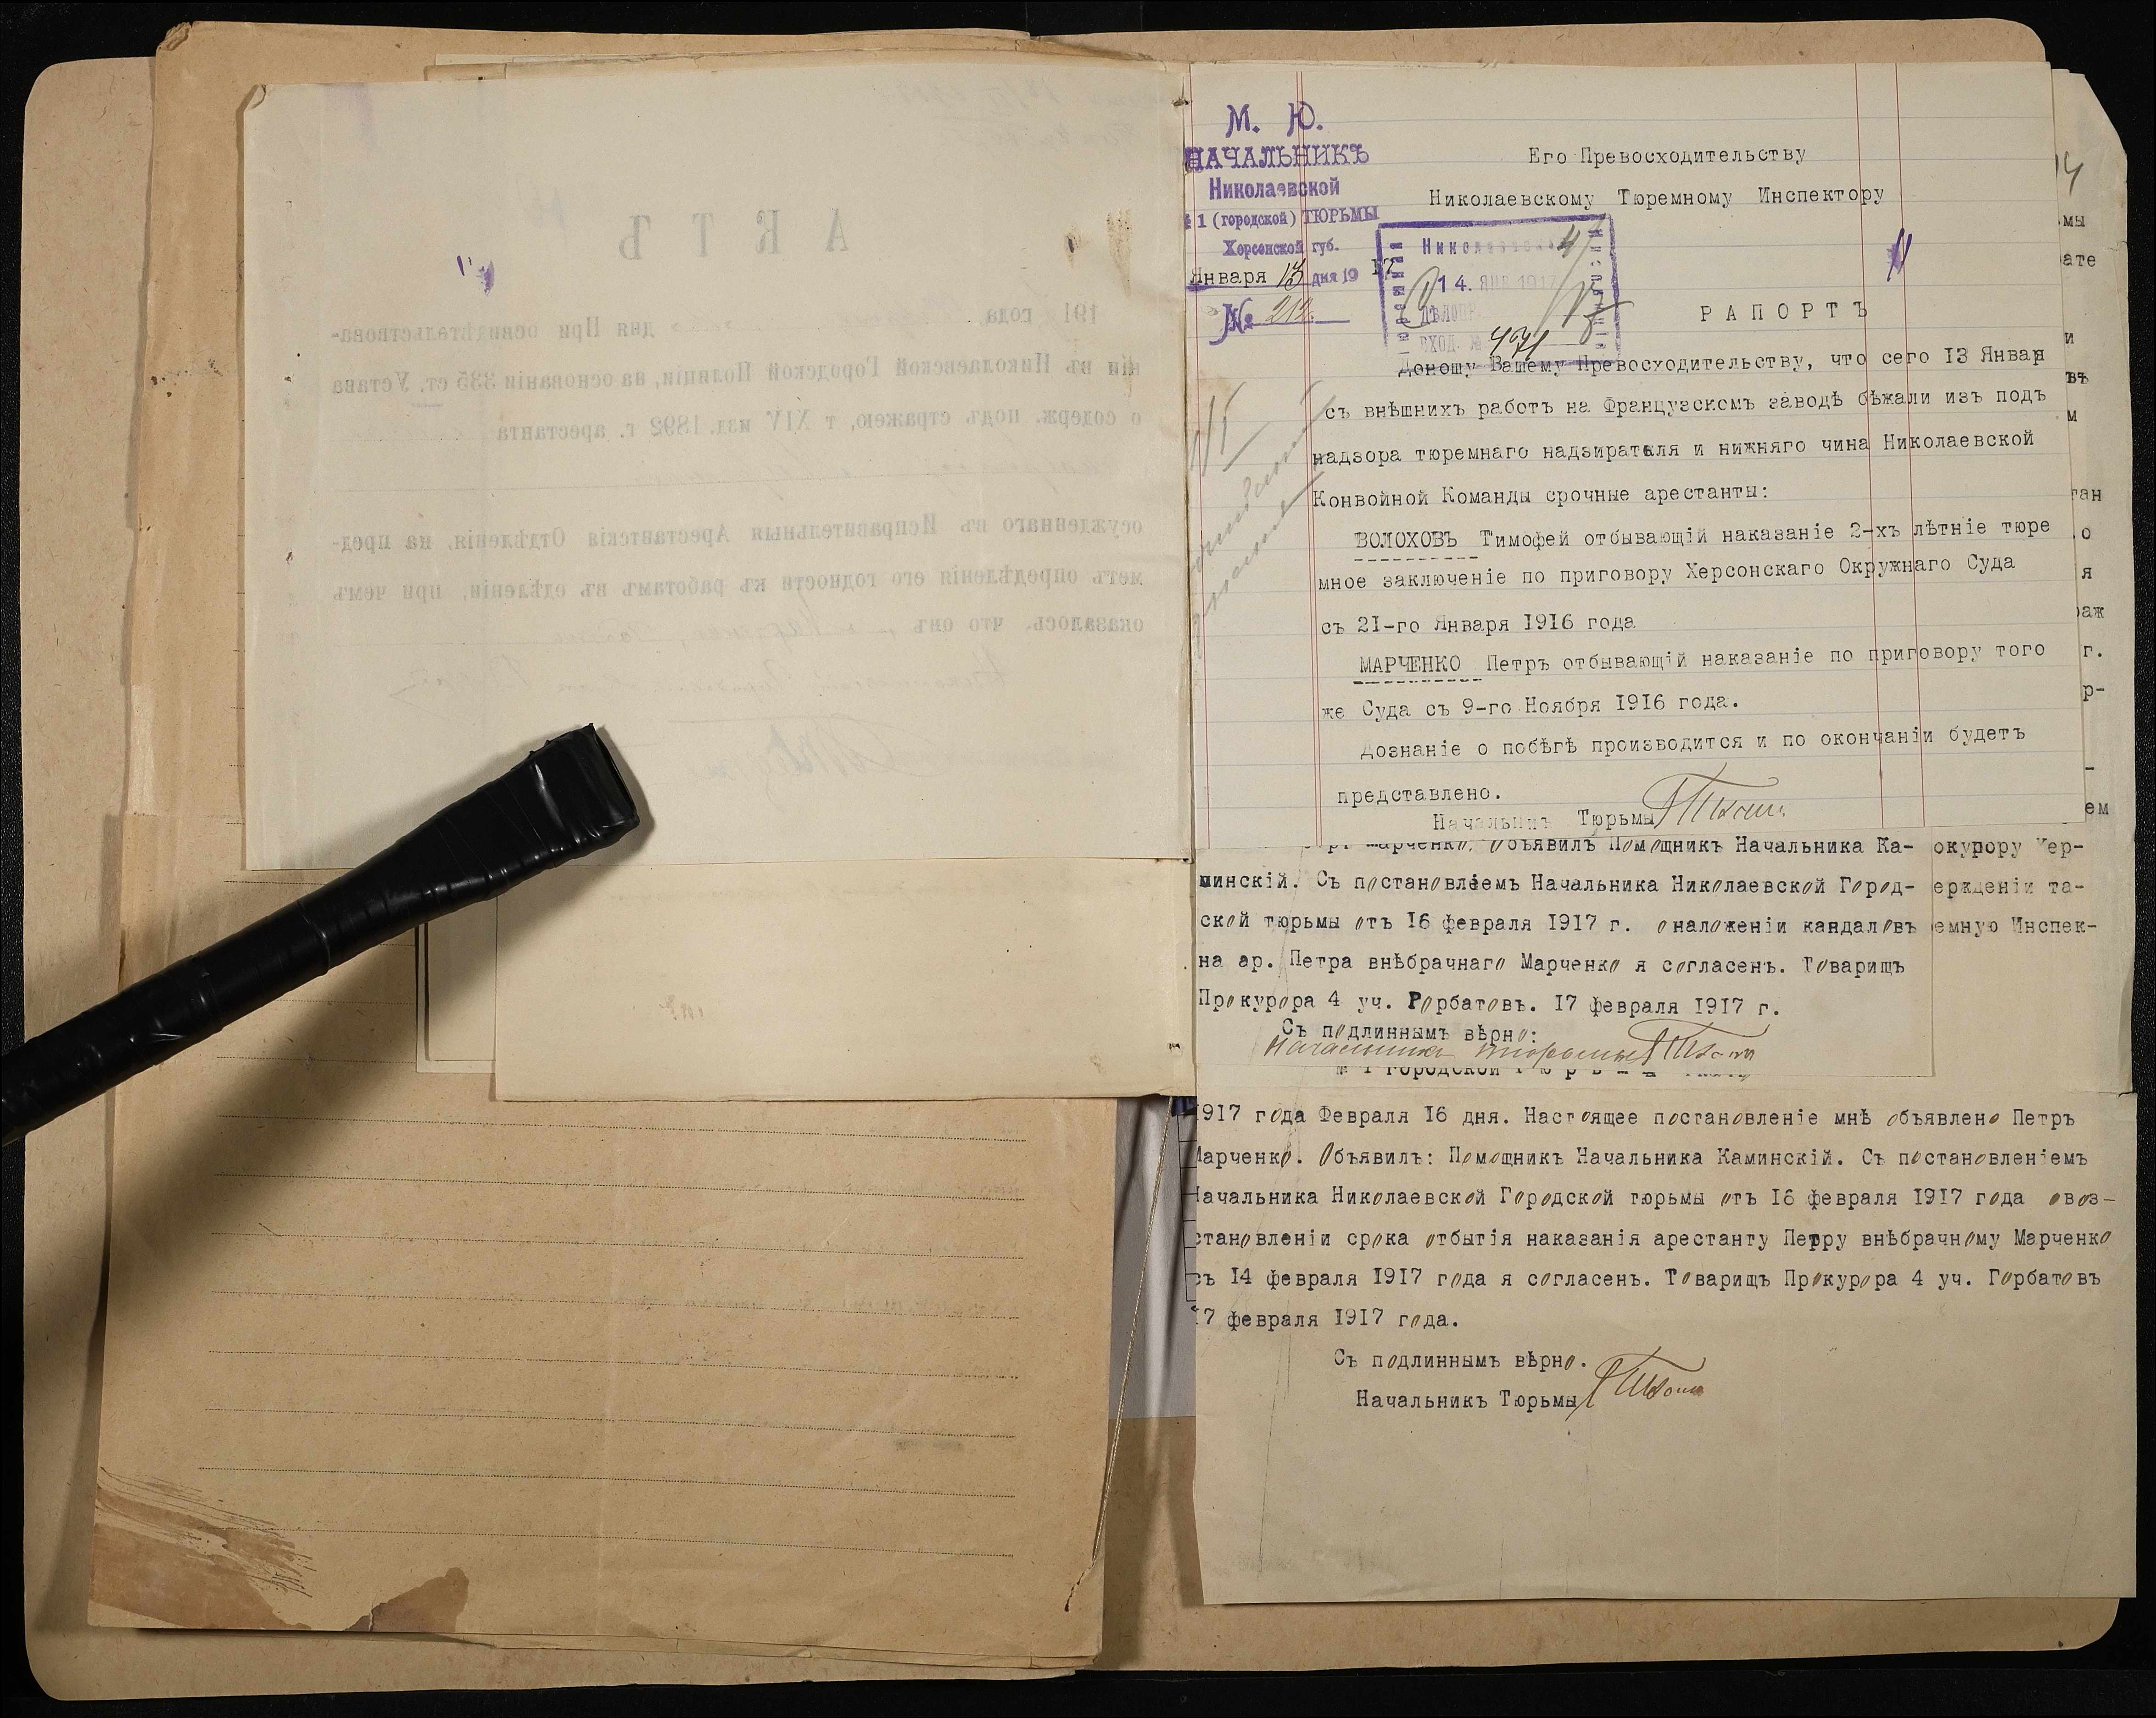 М. Ю.
НАЧАЛЬНИКЪ
Николаевской
№ 1 (городской) ТЮРЬМЫ
Херсонской губ.
Января 13 дня 19 17
№ 212.
Его Превосходительству
Николаевскому Тюремному Инспектору
14. ЯНВ 1917
ВХОД. № 471
РАПОРТЪ
Доношу Вашему Превосходительству, что сего 13 Января
съ внѣшнихъ работъ на Французскомъ заводѣ бѣжали изъ подъ
надзора тюремнаго надзирателя и нижняго чина Николаевской
Конвойной Команды срочные арестанты:
ВОЛОХОВЪ Тимофей отбывающій наказаніе 2-хъ лѣтніе тюре
мное заключеніе по приговору Херсонскаго Окружнаго Суда
съ 21-го Января 1916 года
МАРЧЕНКО Петръ отбывающій наказаніе по приговору того
же Суда съ 9-го Ноября 1916 года.
Дознаніе о побѣгѣ производится и по окончаніи будетъ
представлено.
Начальникъ Тюрьмы
Марченко. Объявилъ Помощникъ Начальника Ка-
минскій. Съ постановлеемъ Начальника Николаевской Город-
ской тюрьмы отъ 16 февраля 1917 г. о наложеніи кандаловъ
на ар. Петра внѣбрачнаго Марченко я согласенъ. Товарищъ
Прокурора 4 уч. Рорбатовъ. 17 февраля 1917 г.
Съ подлиннымъ вѣрно:
Начальникъ тюрьмы
№ 1 Городской Тюрьмы
1917 года Февраля 16 дня. Настоящее постановленіе мнѣ объявлено Петръ
Марченко. Объявилъ: Помощникъ Начальника Каминскій. Съ постановленіемъ
Начальника Николаевской Городской тюрьмы отъ 16 февраля 1917 года овоз-
становленіи срока отбытія наказанія арестанту Петру внѣбрачному Марченко
съ 14 февраля 1917 года я согласенъ. Товарищъ Прокурора 4 уч. Горбатовъ
17 февраля 1917 года.
Съ подлиннымъ вѣрно.
Начальникъ Тюрьмы
окурору Хер-
ержденіи та-
емную Инспек-
АКТЪ
191 года дня При освидѣтельствова-
ніи въ Николаевской Городской Полиціи, на основаніи 335 ст. Устава
о содерж. подъ стражею, т XIV изд. 1892 г. арестанта
осужденнаго въ Исправительныя Арестантскія Отдѣленія, на пред-
метъ опредѣленія его годности къ работамъ въ одѣленіи, при чемъ
оказалось, что онъ